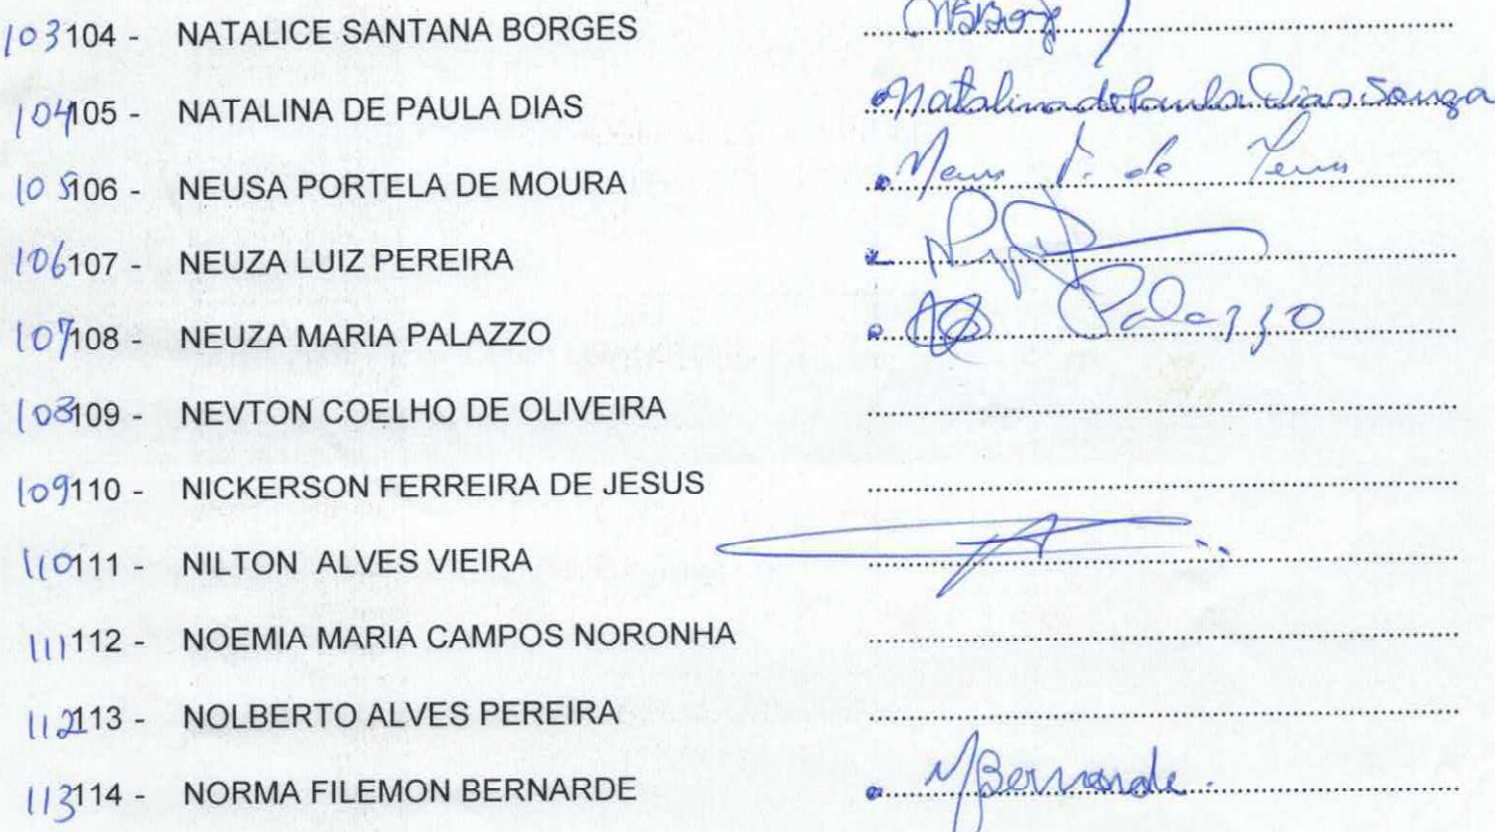 103 104 - NATALICE SANTANA BORGES
104 105 - NATALINA DE PAULA DIAS Natalina de Paula Dias Souza
105 106 - NEUSA PORTELA DE MOURA
106 107 - NEUZA LUIZ PEREIRA
107 108 - NEUZA MARIA PALAZZO Palazzo
108 109 - NEVTON COELHO DE OLIVEIRA
109 110 - NICKERSON FERREIRA DE JESUS
110 111 - NILTON ALVES VIEIRA
111 112 - NOEMIA MARIA CAMPOS NORONHA
112 113 - NOLBERTO ALVES PEREIRA
113 114 - NORMA FILEMON BERNARDE NBernarde.